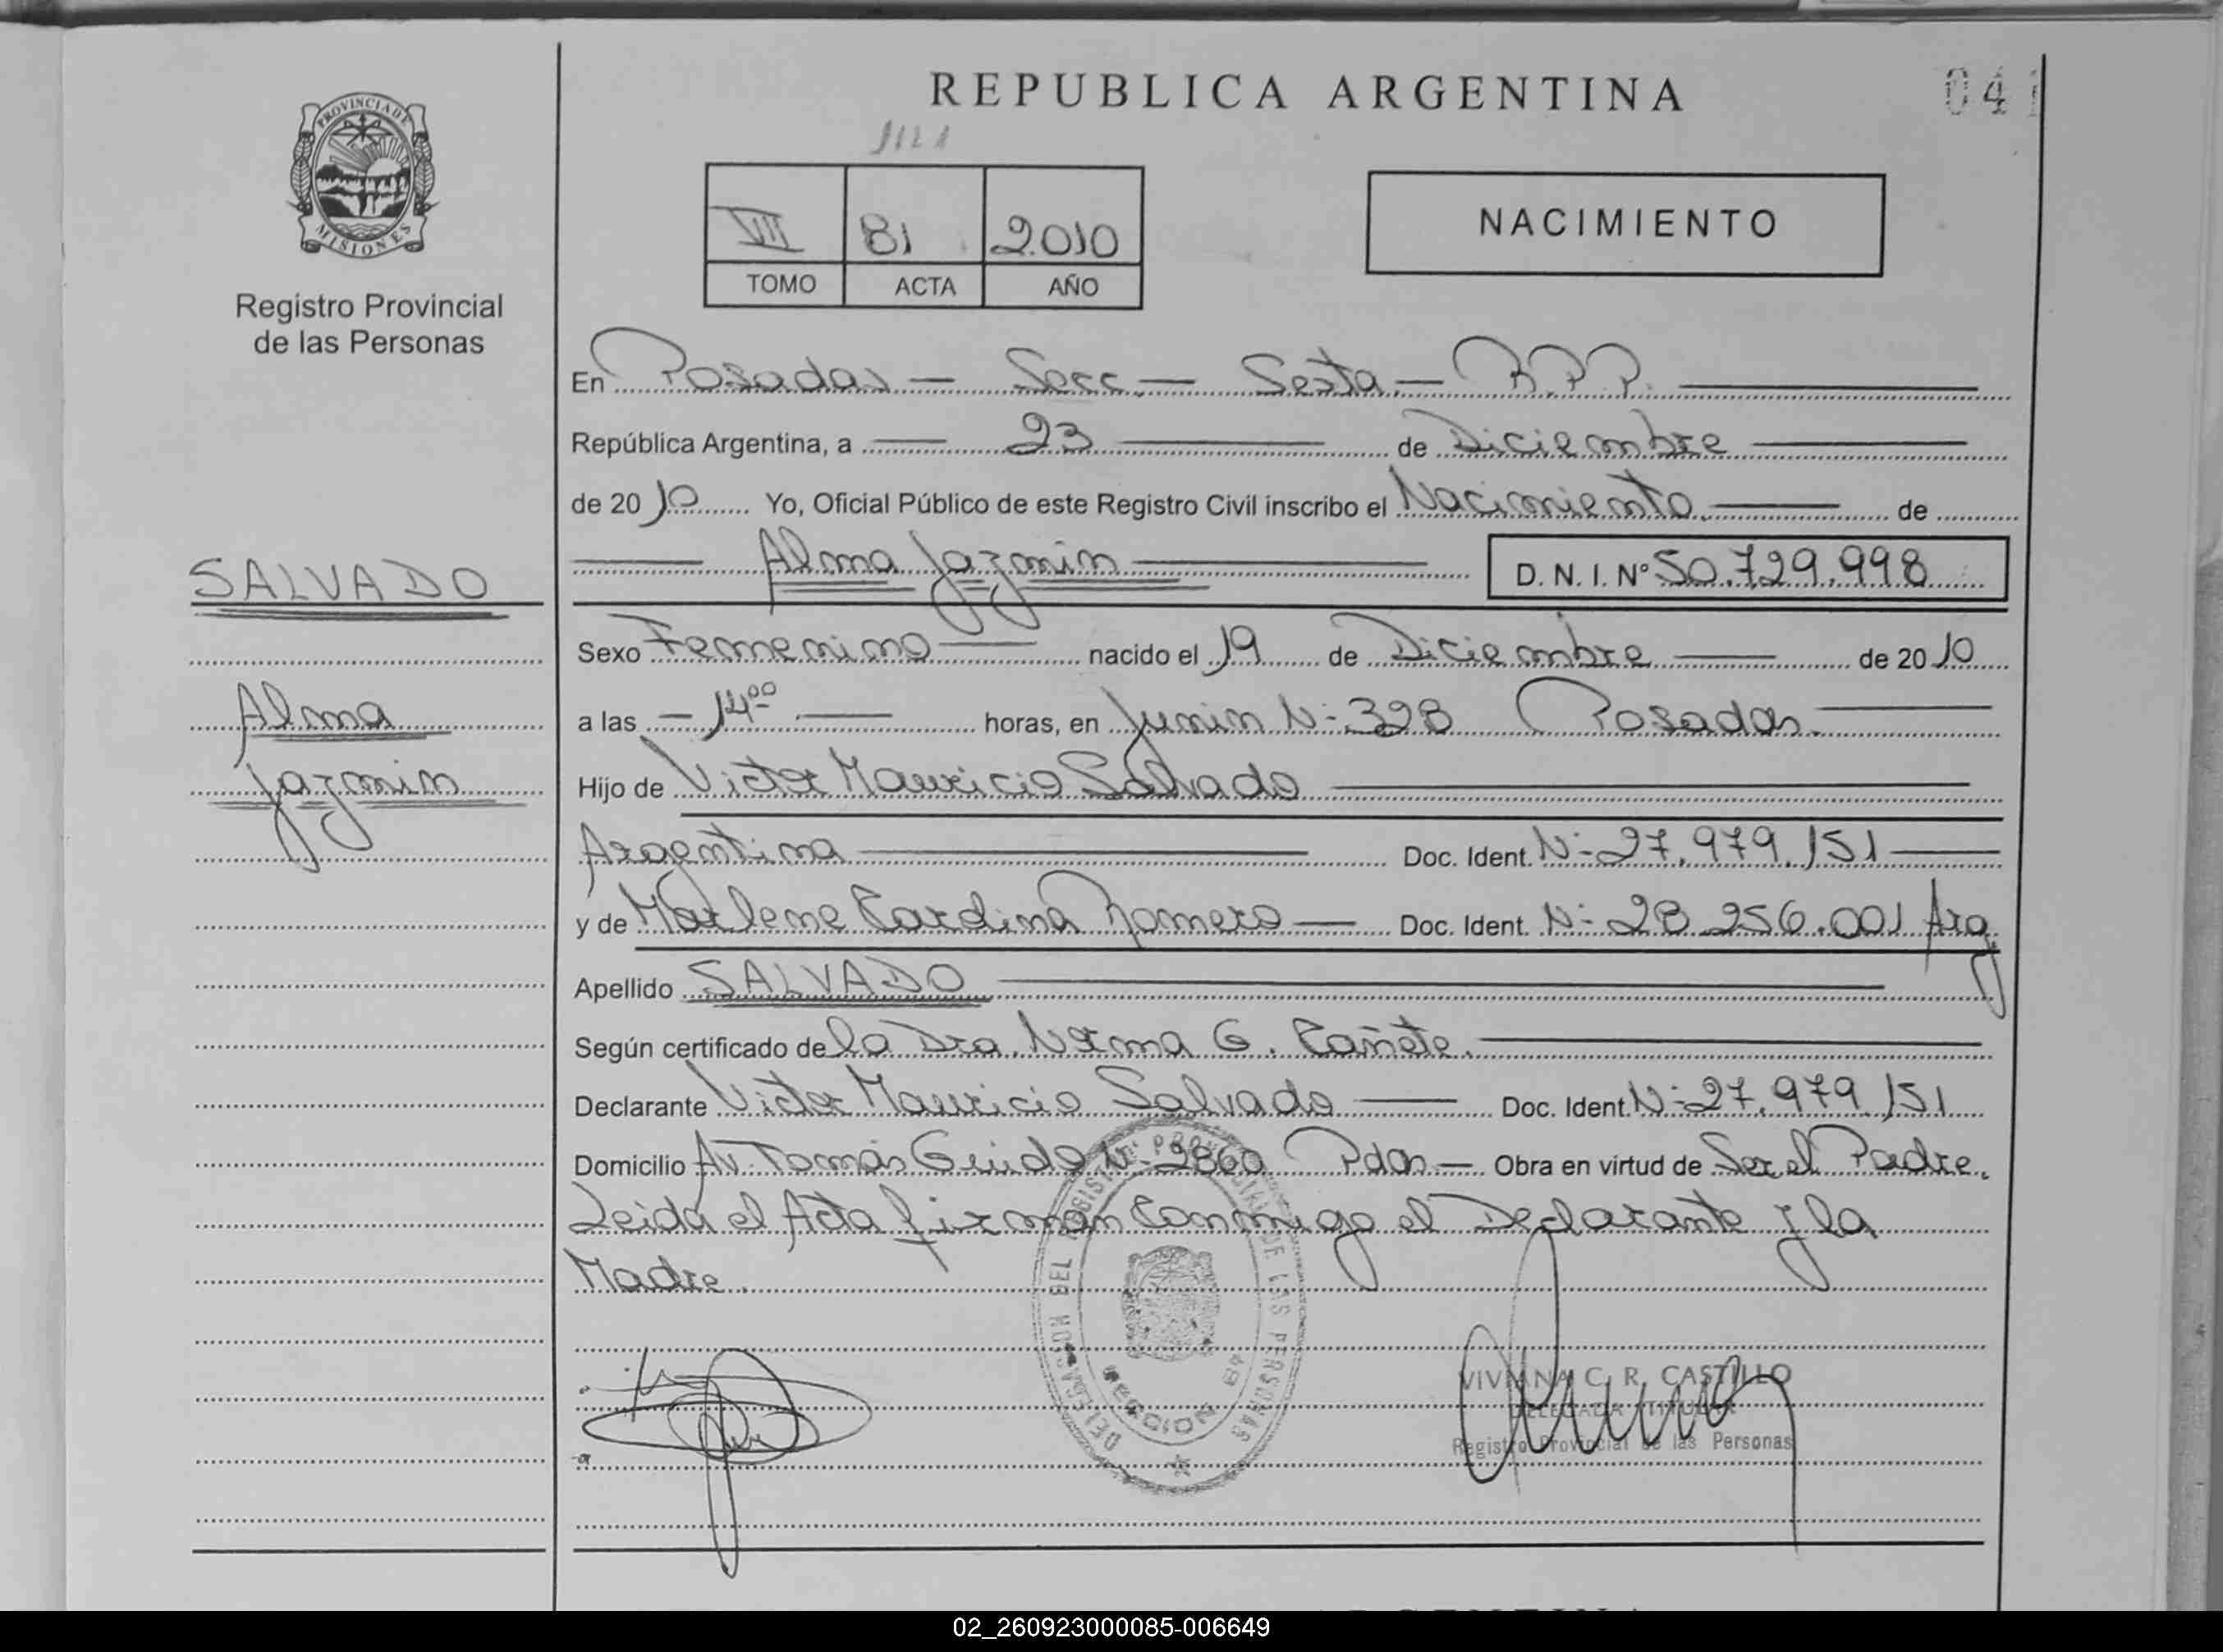 REPUBLICA ARGENTINA
041
PROVINCIA DE
MISIONES
Registro Provincial
de las Personas
VII 81 2.010
TOMO ACTA AÑO
NACIMIENTO
En Posadas – Secc – Sexta – R.P.P.
República Argentina, a 23 de Diciembre
de 2010 Yo, Oficial Público de este Registro Civil inscribo el Nacimiento de
Alma Jazmin D. N. I. Nº 50.729.998
SALVADO
Alma
Jazmin
Sexo Femenino nacido el 19 de Diciembre de 2010
a las – 14⁰⁰ horas, en Junin Nº 328 Posadas.
Hijo de Victor Mauricio Salvado
Argentina Doc. Ident. Nº 27.979.151
y de Marlene Cardina Romero Doc. Ident. Nº 28.256.001 Arg
Apellido SALVADO
Según certificado de la Dra. Norma G. Cañete.
Declarante Victor Mauricio Salvado Doc. Ident. Nº 27.979.151
Domicilio Av. Tomás Guido Nº 2860 Pdas – Obra en virtud de Ser el Padre.
Leida el Acta firman Conmigo el Declarante y la
Madre.
DELEGACION DEL REGISTRO PROVINCIAL DE LAS PERSONAS
VIVIANA C. R. CASTILLO
DELEGADA TITULAR
Registro Provincial de las Personas
02_260923000085-006649